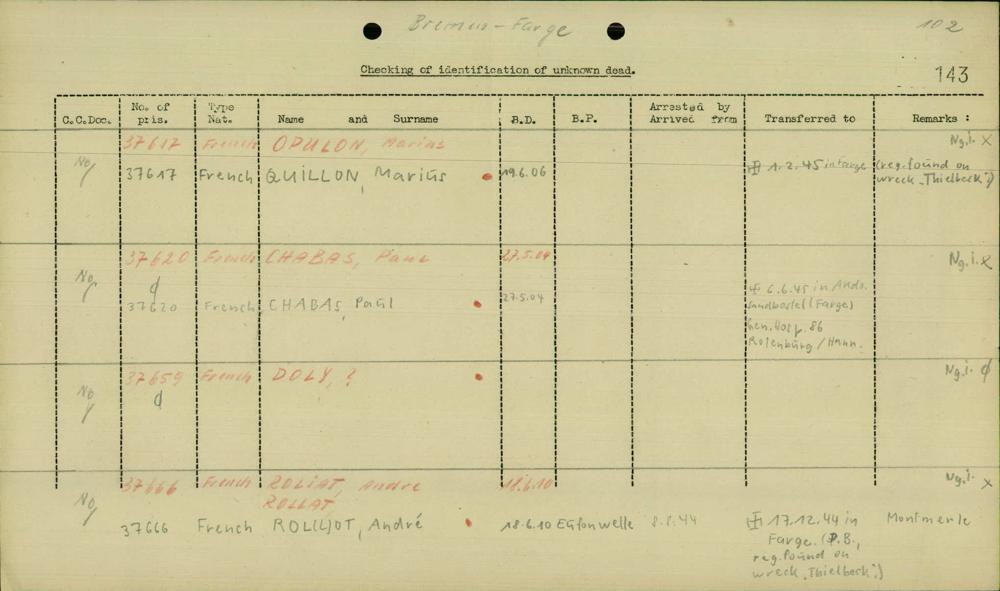 Bremen-Farge
102
Checking of identification of unknown dead.
143
C.C.Doc. No. of pris. Type Nat. Name and Surname B.D. B.P. Arrested by Arrived from Transferred to Remarks :
37617 French OPULON, Marius Ng.i. x
No 37617 French QUILLON, Marius 19.6.06 1.2.45 in Farge (reg. found on
wreck „Thielbeck")
37620 French CHABAS, Paul 27.5.04 Ng.i. x
No
37620 French CHABAS, Paul 27.5.04 6.6.45 in
Sandbostel (Farge)
Gen. Hosp. 86
Rotenburg/Hann.
37659 French DOLY, ? Ng.i.
No
37666 French ROLIAT, André 18.6.10 Ng.i. x
ROLLAT
No
37666 French ROL(L)OT, André 18.6.10 8.8.44 17.12.44 in Montmerle
Farge. (P.B.,
reg. found on
wreck „Thielbeck")